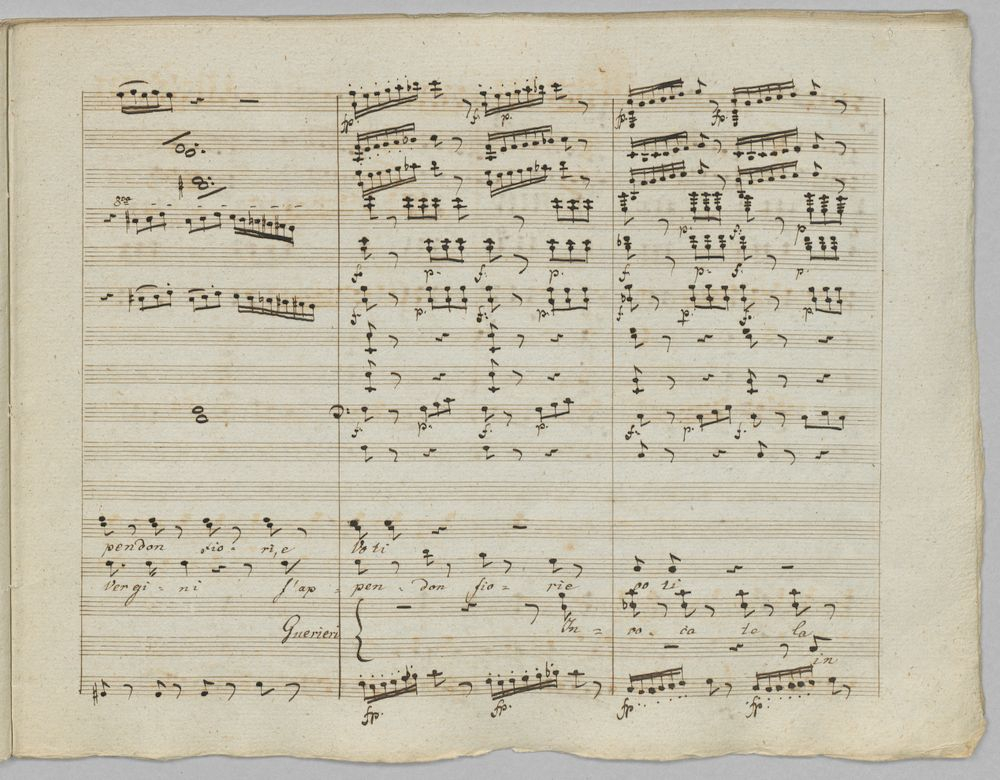 fp. f. p. fp. fp.
8va
p. f. p.
fp. p. f. p. f. p. f. p.
f. p. f. p. f. p. f.
f. p. f. p. f. p. f.
pendon fio = ri, e Voti
Vergi = ni s'ap = pen = don fio = ri e vo ti
Guerieri In = vo = ca te la
in
fp. fp. fp. fp.